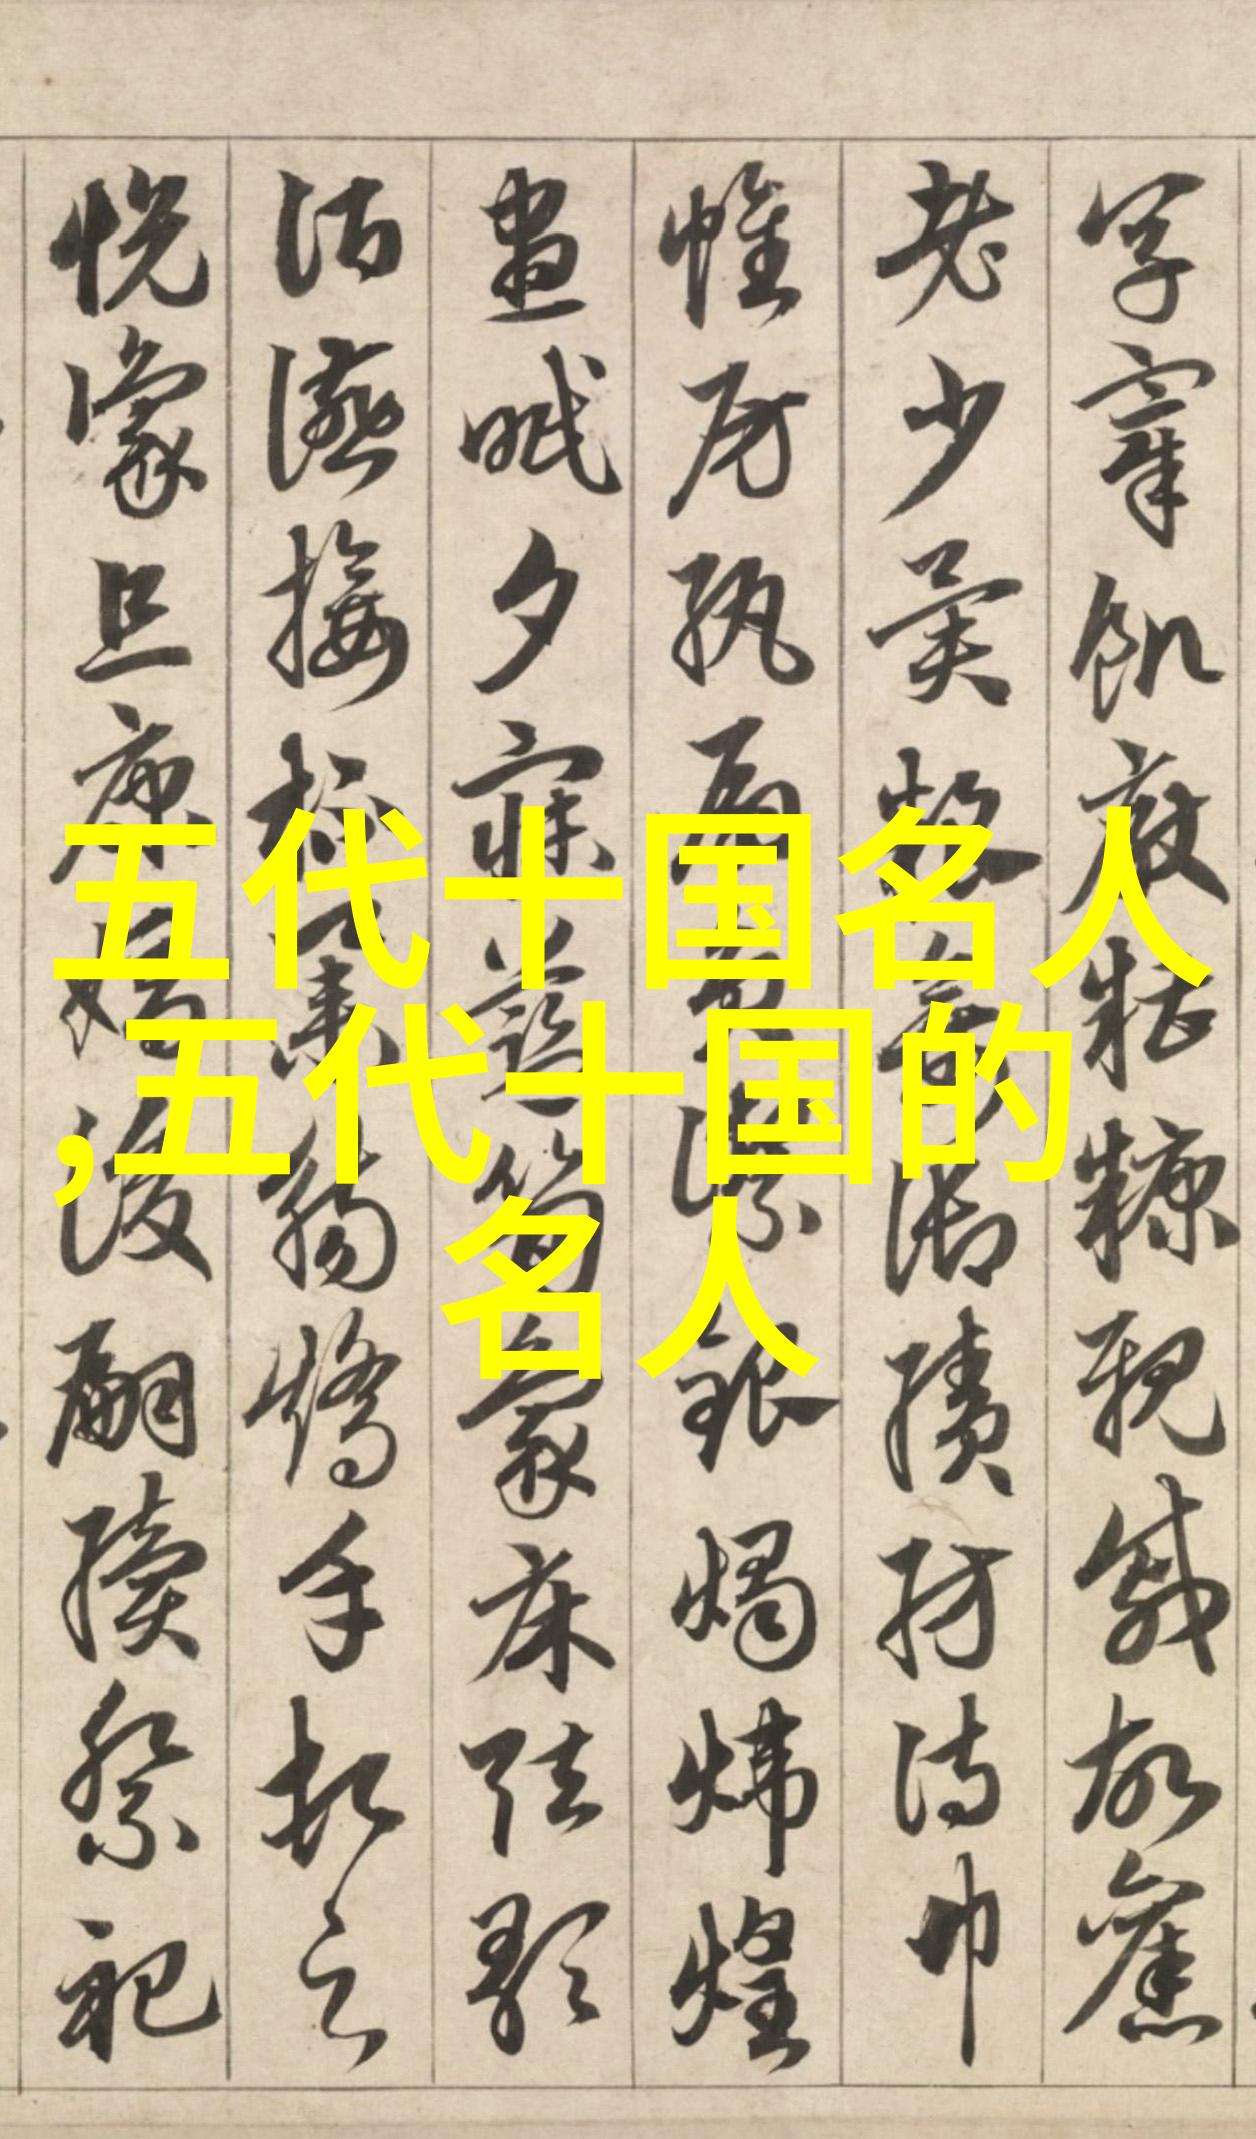 五代十国名人
,五代十国的
名人
烹宰飢厭糟糠親戚故舊
老少異粮妾御績紡侍巾
帷房紈扇圓潔銀燭煒煌
晝眠夕寐藍筍象床弦歌
酒讌接杯舉觴矯手頓足
悅豫且康嫡後嗣續祭祀